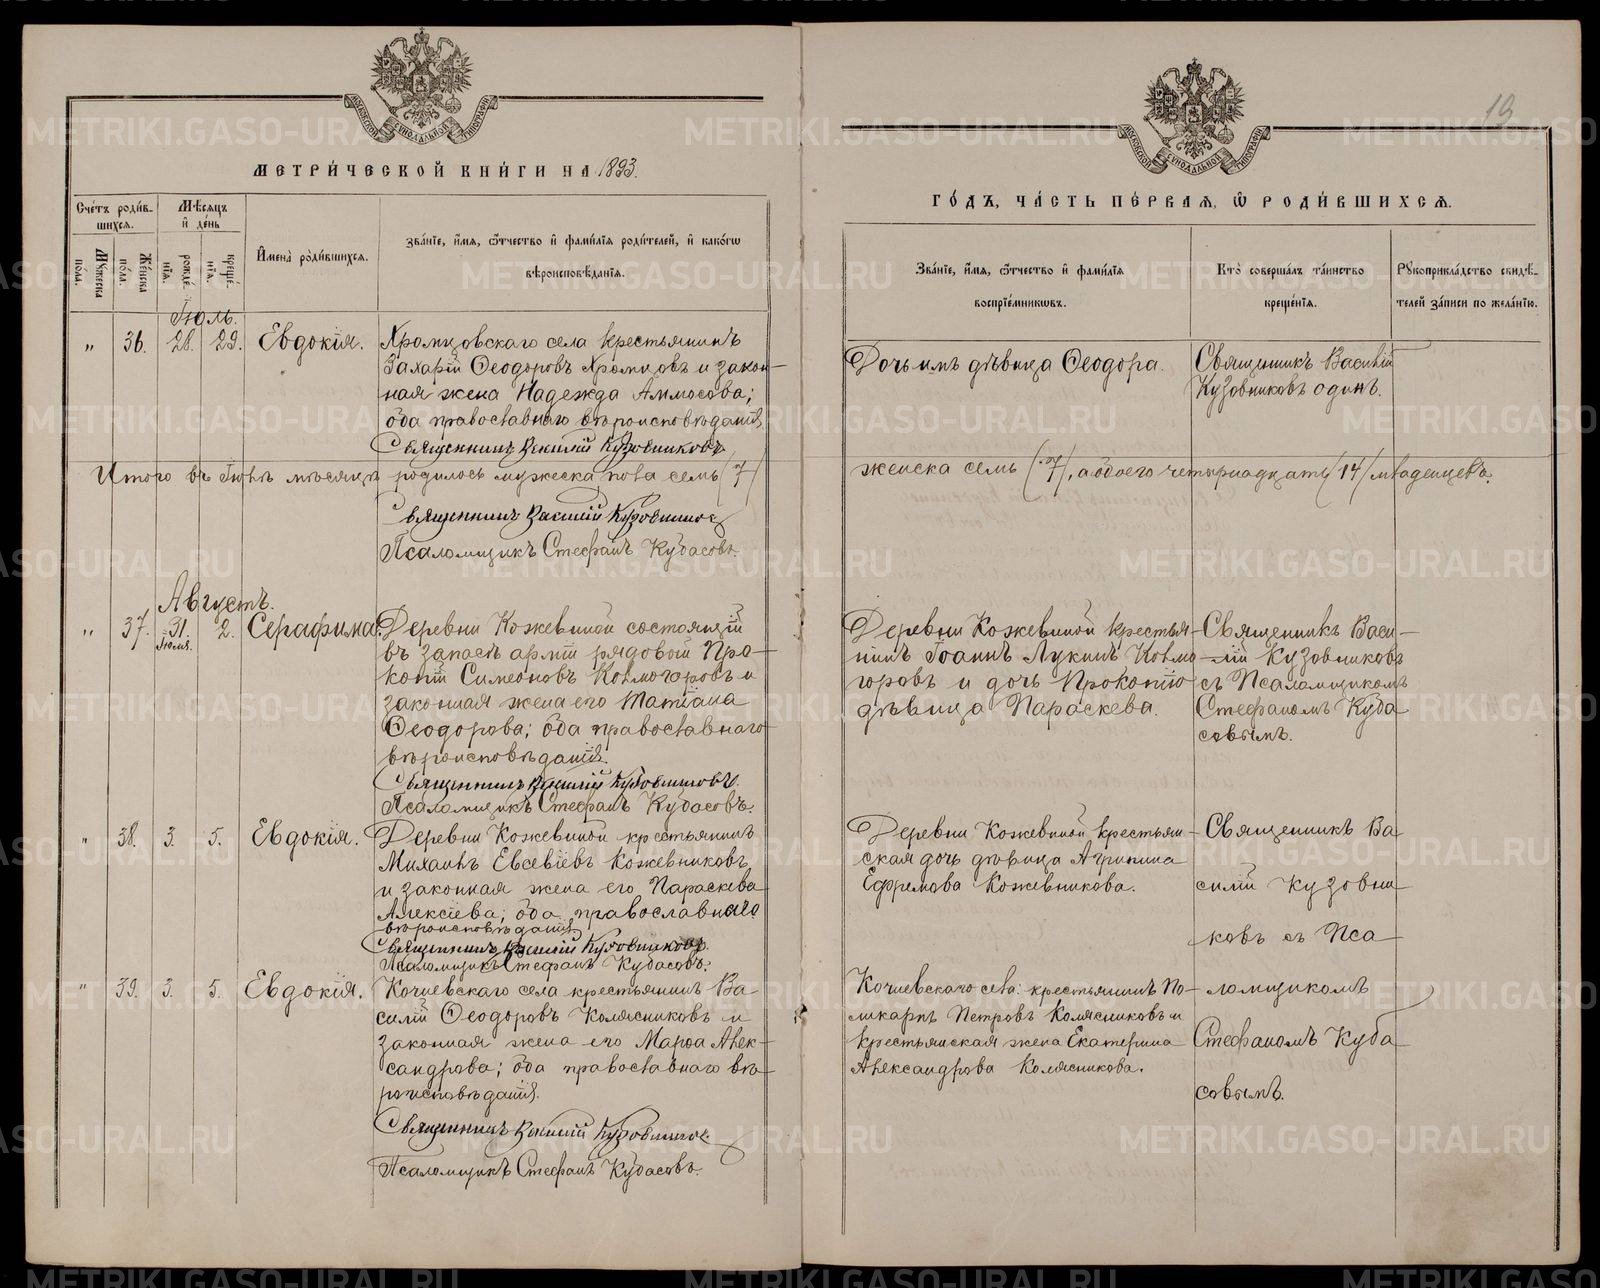 МОСКОВСКОЙ СѴНОДАЛЬНОЙ ТИПОГРАФІИ
МЕТРИ́ЧЕСКОЙ КНИ́ГИ НА 1893.
Сче́тъ роди́в-
шихся.
Мѣ́сяцъ
и҆ де́нь
И҆мена̀ роди́вшихся.
Зва́нїе, и҆́мя, ѻ҆́тчество и҆ фами́лїя роди́телей, и҆ како́гѡ
вѣроисповѣ́данїя.
Мꙋ́жеска
по́ла.
Же́нска
по́ла.
рожде́-
нїя.
креще́-
нїя.
Іюль.
„ 36. 28. 29. Евдокія. Хромцовскаго села крестьянинъ
Захарій Ѳеодоровъ Хромцовъ и закон-
ная жена Надежда Аммосова;
оба православнаго вѣроисповѣданія.
Священникъ Василій Кузовниковъ
Итого въ Іюлѣ мѣсяцѣ родилось мужеска пола семь (7)
Священникъ Василій Кузовниковъ
Псаломщикъ Стефанъ Кубасовъ.
Августъ.
„ 37. 31 Іюля. 2. Серафима. Деревни Кожевиной состоящій
въ запасѣ арміи рядовой Про-
копій Симеоновъ Колмогоровъ и
законная жена его Татіана
Ѳеодорова; оба православнаго
вѣроисповѣданія.
Священникъ Василій Кузовниковъ.
Псаломщикъ Стефанъ Кубасовъ.
„ 38. 3. 5. Евдокія. Деревни Кожевиной крестьянинъ
Михаилъ Евсевіевъ Кожевниковъ
и законная жена его Параскева
Алексіева; оба православнаго
вѣроисповѣданія
Священникъ Василій Кузовниковъ.
Псаломщикъ Стефанъ Кубасовъ.
„ 39. 3. 5. Евдокія. Кочневскаго села крестьянинъ Ва-
силій Ѳеодоровъ Колясниковъ и
законная жена его Марѳа Алек-
сандрова; оба православнаго вѣ-
роисповѣданія.
Священникъ Василій Кузовниковъ
Псаломщикъ Стефанъ Кубасовъ.
МОСКОВСКОЙ СѴНОДАЛЬНОЙ ТИПОГРАФІИ
ГО́ДЪ, ЧА́СТЬ ПЕ́РВАЯ, Ѽ РОДИ́ВШИХСЯ.
Зва́нїе, и҆́мя, ѻ҆́тчество и҆ фами́лїя
воспрїе́мникѡвъ.
Кто̀ соверша́лъ та́инство
креще́нїя.
Рꙋкоприкла́дство свидѣ́-
телей за́писи по жела́нїю.
Дочь имъ дѣвица Ѳеодора.
Священникъ Василій
Кузовниковъ одинъ.
женска семь (7), а обоего четырнадцать (14) младенцевъ.
Деревни Кожевиной крестья-
нинъ Іоаннъ Лукинъ Колмо-
горовъ и дочь Прокопію
дѣвица Параскева.
Священникъ Васи-
лій Кузовниковъ
съ Псаломщикомъ
Стефаномъ Куба
совымъ.
Деревни Кожевиной крестьян-
ская дочь дѣвица Агрипина
Ефремова Кожевникова.
Священникъ Ва-
силій Кузовни-
ковъ съ Пса-
Кочневскаго села: крестьянинъ По-
ликарпъ Петровъ Колясниковъ и
крестьянская жена Екатерина
Александрова Колясникова.
ломщикомъ
Стефаномъ Куба
совымъ.
METRIKI.GASO-URAL.RU